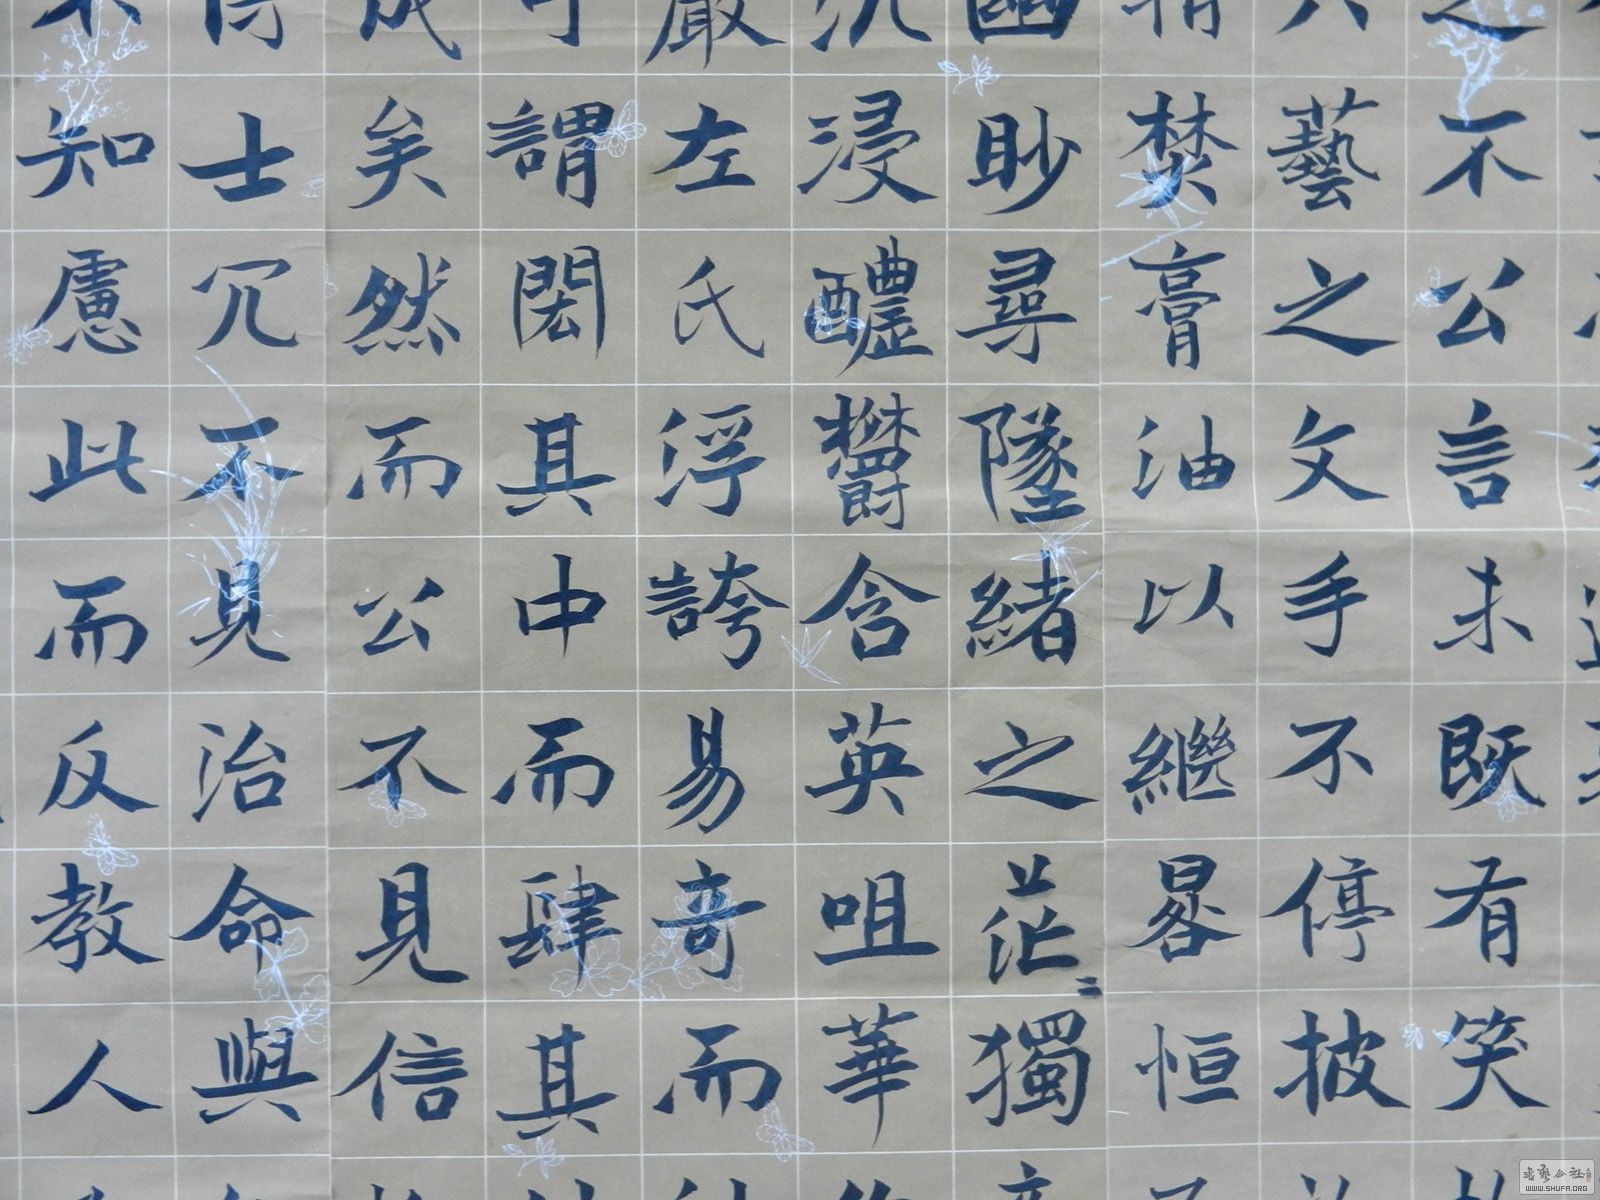 之不公言未既有笑
藝之文手不停披
焚膏油以繼晷恒
眇尋墜緒之茫〻獨
浸醲鬱含英咀華
嚴左氏浮誇易奇而
謂閎其中而肆其
成矣然而公不見信
士冗不見治命與
知慮此而反教人
書藝公社
WWW.SHUFA.ORG